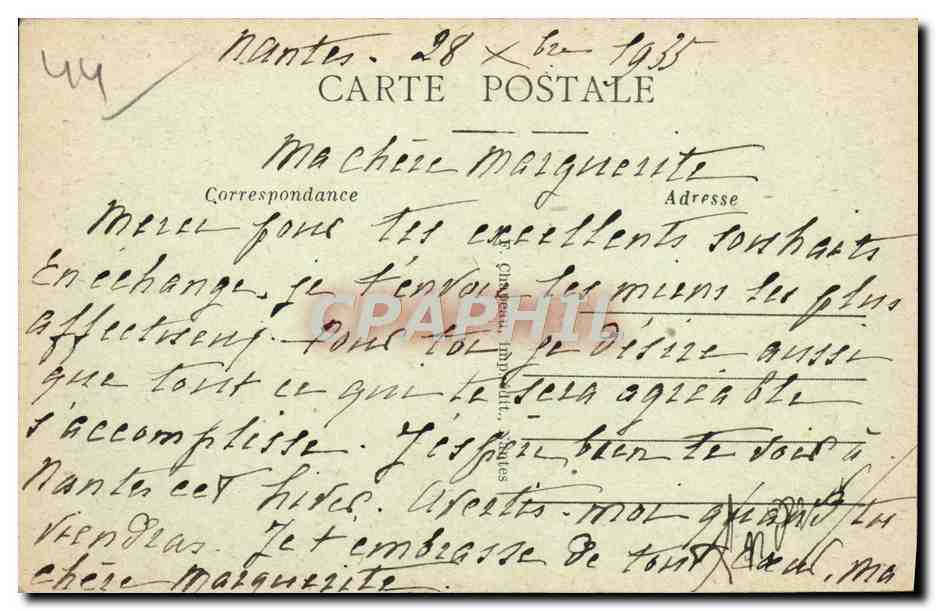 44
Nantes. 28 Xbre 1935
CARTE POSTALE
Ma chère Marguerite
Correspondance
Adresse
Merci pour tes excellents souhaits
En échange, je t'envoie les miens les plus
affectueux. Pour toi je désire aussi
que tout ce qui te sera agréable
s'accomplisse. J'espère bien te voir à
Nantes cet hiver. Avertis-moi quand tu
viendras. Je t'embrasse de tout cœur, ma
chère Marguerite.
F. Chapeau, Imp.-Édit., Nantes
CPAPHIL